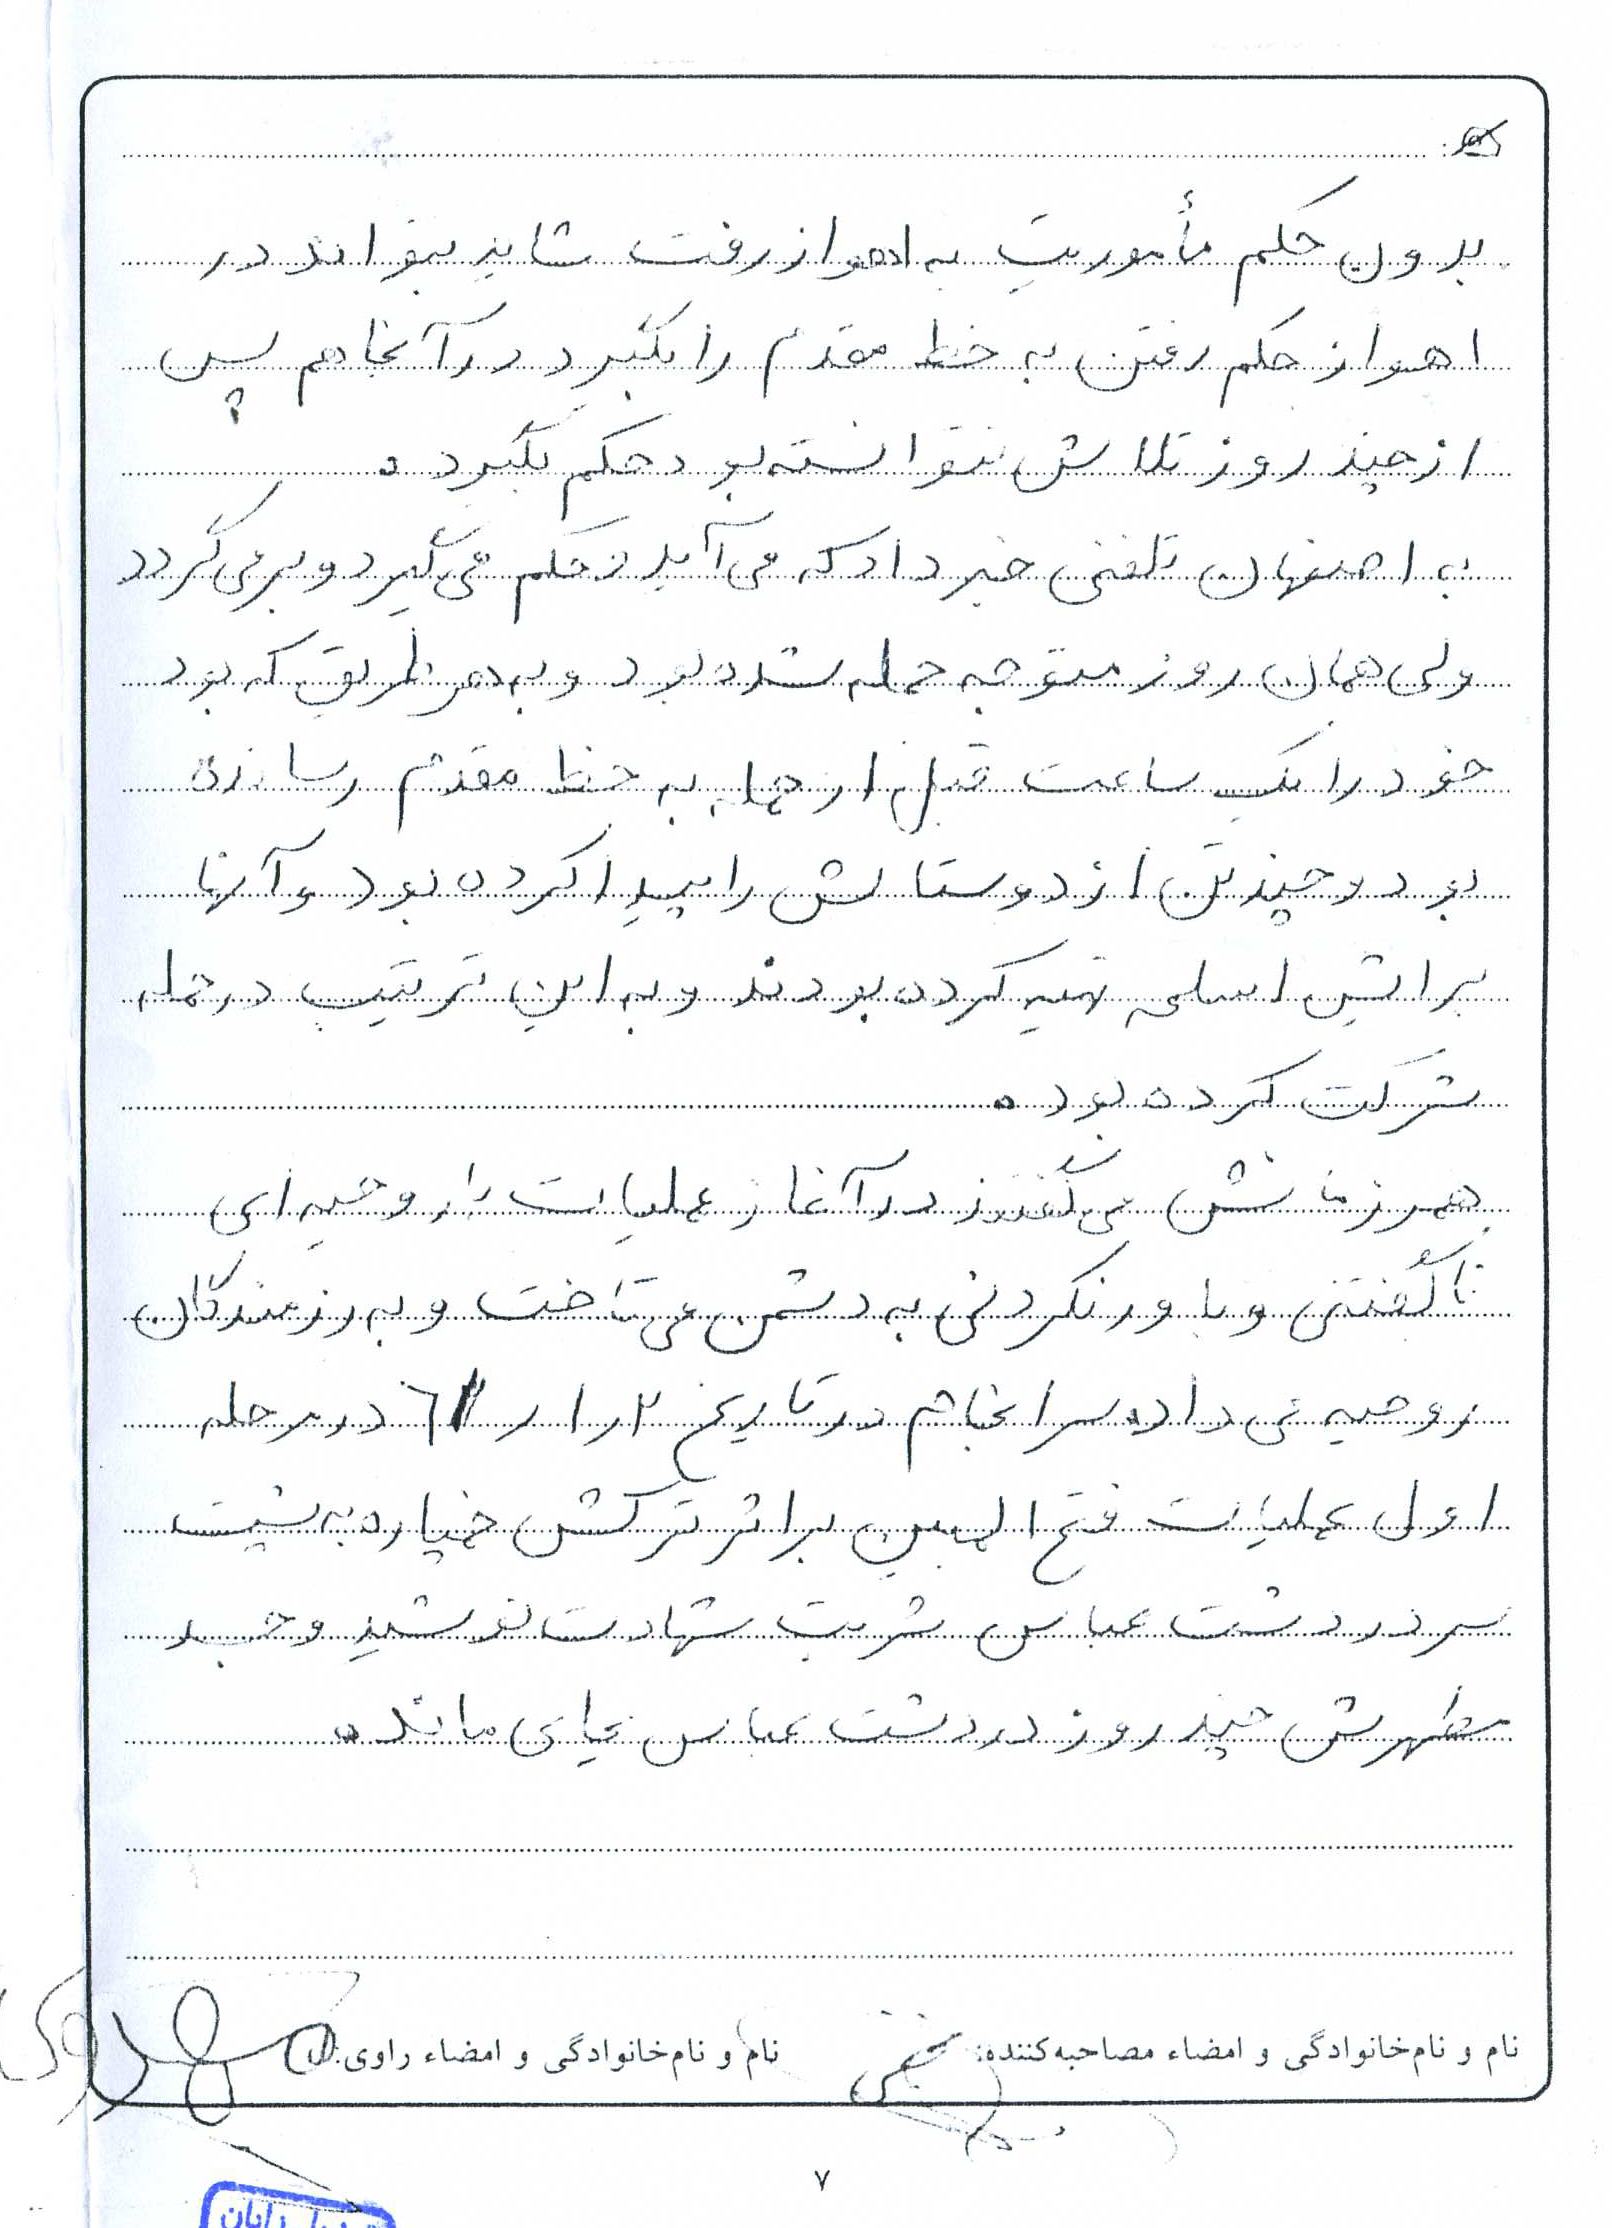 بدون حکم مأموریت به اهواز رفت شاید بتواند در
اهواز حکم رفتن به خط مقدم را بگیرد در آنجا هم پس
از چند روز تلاش نتوانسته بود حکم بگیرد.
به اصفهان تلفنی خبر داد که می‌آید و حکم می‌گیرد و برمی‌گردد
ولی همان روز متوجه حمله شده بود و به هر طریق که بود
خود را یک ساعت قبل از حمله به خط مقدم رسانده
بود و چند تن از دوستانش را پیدا کرده بود و آنها
برایش اسلحه تهیه کرده بودند و به این ترتیب در حمله
شرکت کرده بود.
همرزمانش می‌گفتند در آغاز عملیات با روحیه‌ای
ناگفتنی و باورنکردنی به دشمن می‌تاخت و به رزمندگان
روحیه می‌داد. سرانجام در تاریخ ۲ر۱ر۶۱ در مرحله
اول عملیات فتح المبین بر اثر ترکش خمپاره به پشت
سر در دشت عباس شربت شهادت نوشید و جسد
مطهرش چند روز در دشت عباس بجای ماند.
نام و نام‌خانوادگی و امضاء مصاحبه‌کننده: نام و نام‌خانوادگی و امضاء راوی:
۷